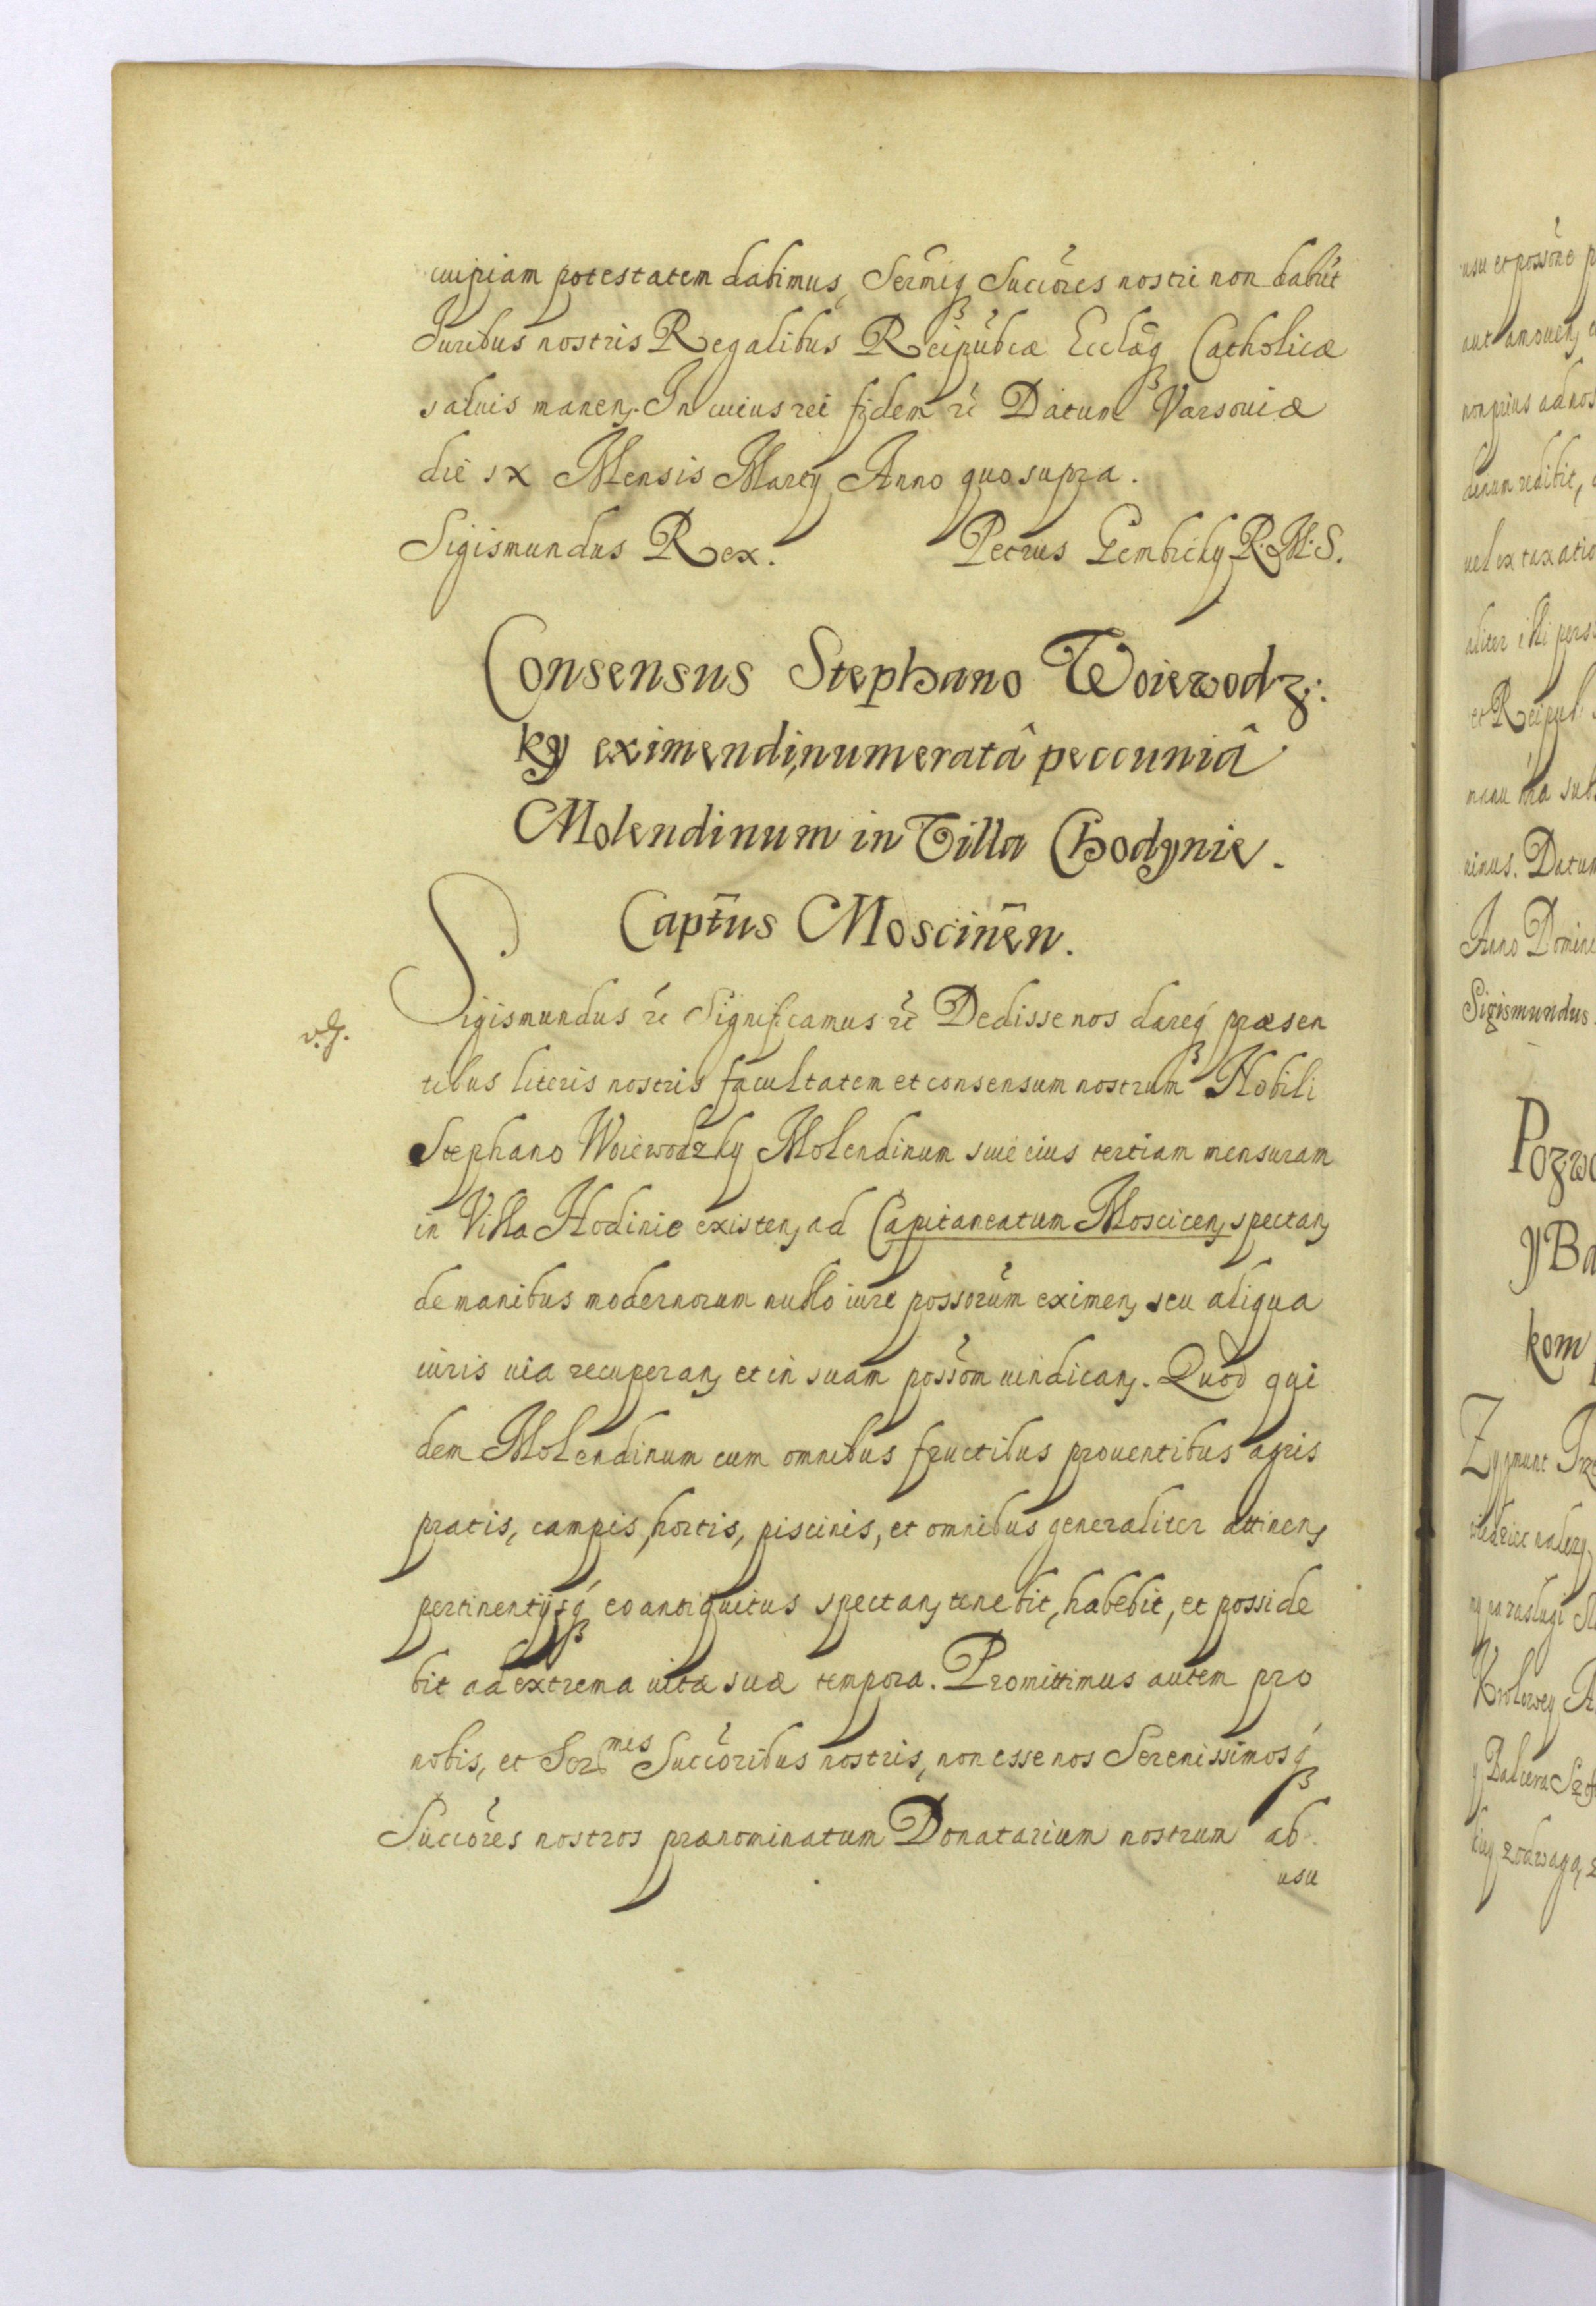 cuipiam potestatem dabimus, Sermiq Succóres nostri non dabũt
Juribus nostris Regalibus Reipubcæ Ecclãq Catholicæ
saluis manen. In cuius rei fidem rc Datum Varsouiæ
die IX Mensis Marcy Anno quo supra.
Sigismundus Rex. Petrus Gembicky R.M.S.
Consensus Stephano Woiewodz:
ky eximendi, numeratâ peccuniâ
Molendinum in Villa Chodynie.
Capt̃us Moscineñ.
v. g.
Sigismundus rc Significamus rc Dedisse nos dareq́ præsen
tibus literis nostris facultatem et consensum nostrum Nobili
Stephano Woiewodzky Molendinum siue eius tertiam mensuram
in Villa Hodinie existen, ad Capitaneatum Moscicen, spectan,
de manibus modernorum nullo iure possorũm eximen, seu aliqua
iuris uia recuperan, et in suam possõm uindican. Quod qui
dem Molendinum cum omnibus fructibus prouentibus agris
pratis, campis, hortis, piscinis, et omnibus generaliter attinen,
pertinentijsq́ eo antiquitus spectan, tenebit, habebit, et posside
bit ad extrema uitæ suæ tempora. Promittimus autem pro
nobis, et Ser.mis Succõribus nostris, non esse nos Serenissimosq́
Succõres nostros prænominatum Donatarium nostrum ab
usu
usu et possõne
aut amouen,
non prius ad nos
uel ex taxatio
aliter illi
et Reipub
uimus. Datum
Anno Domini
Sigismundus
Pozwo
y Ba
kom
Zygmunt